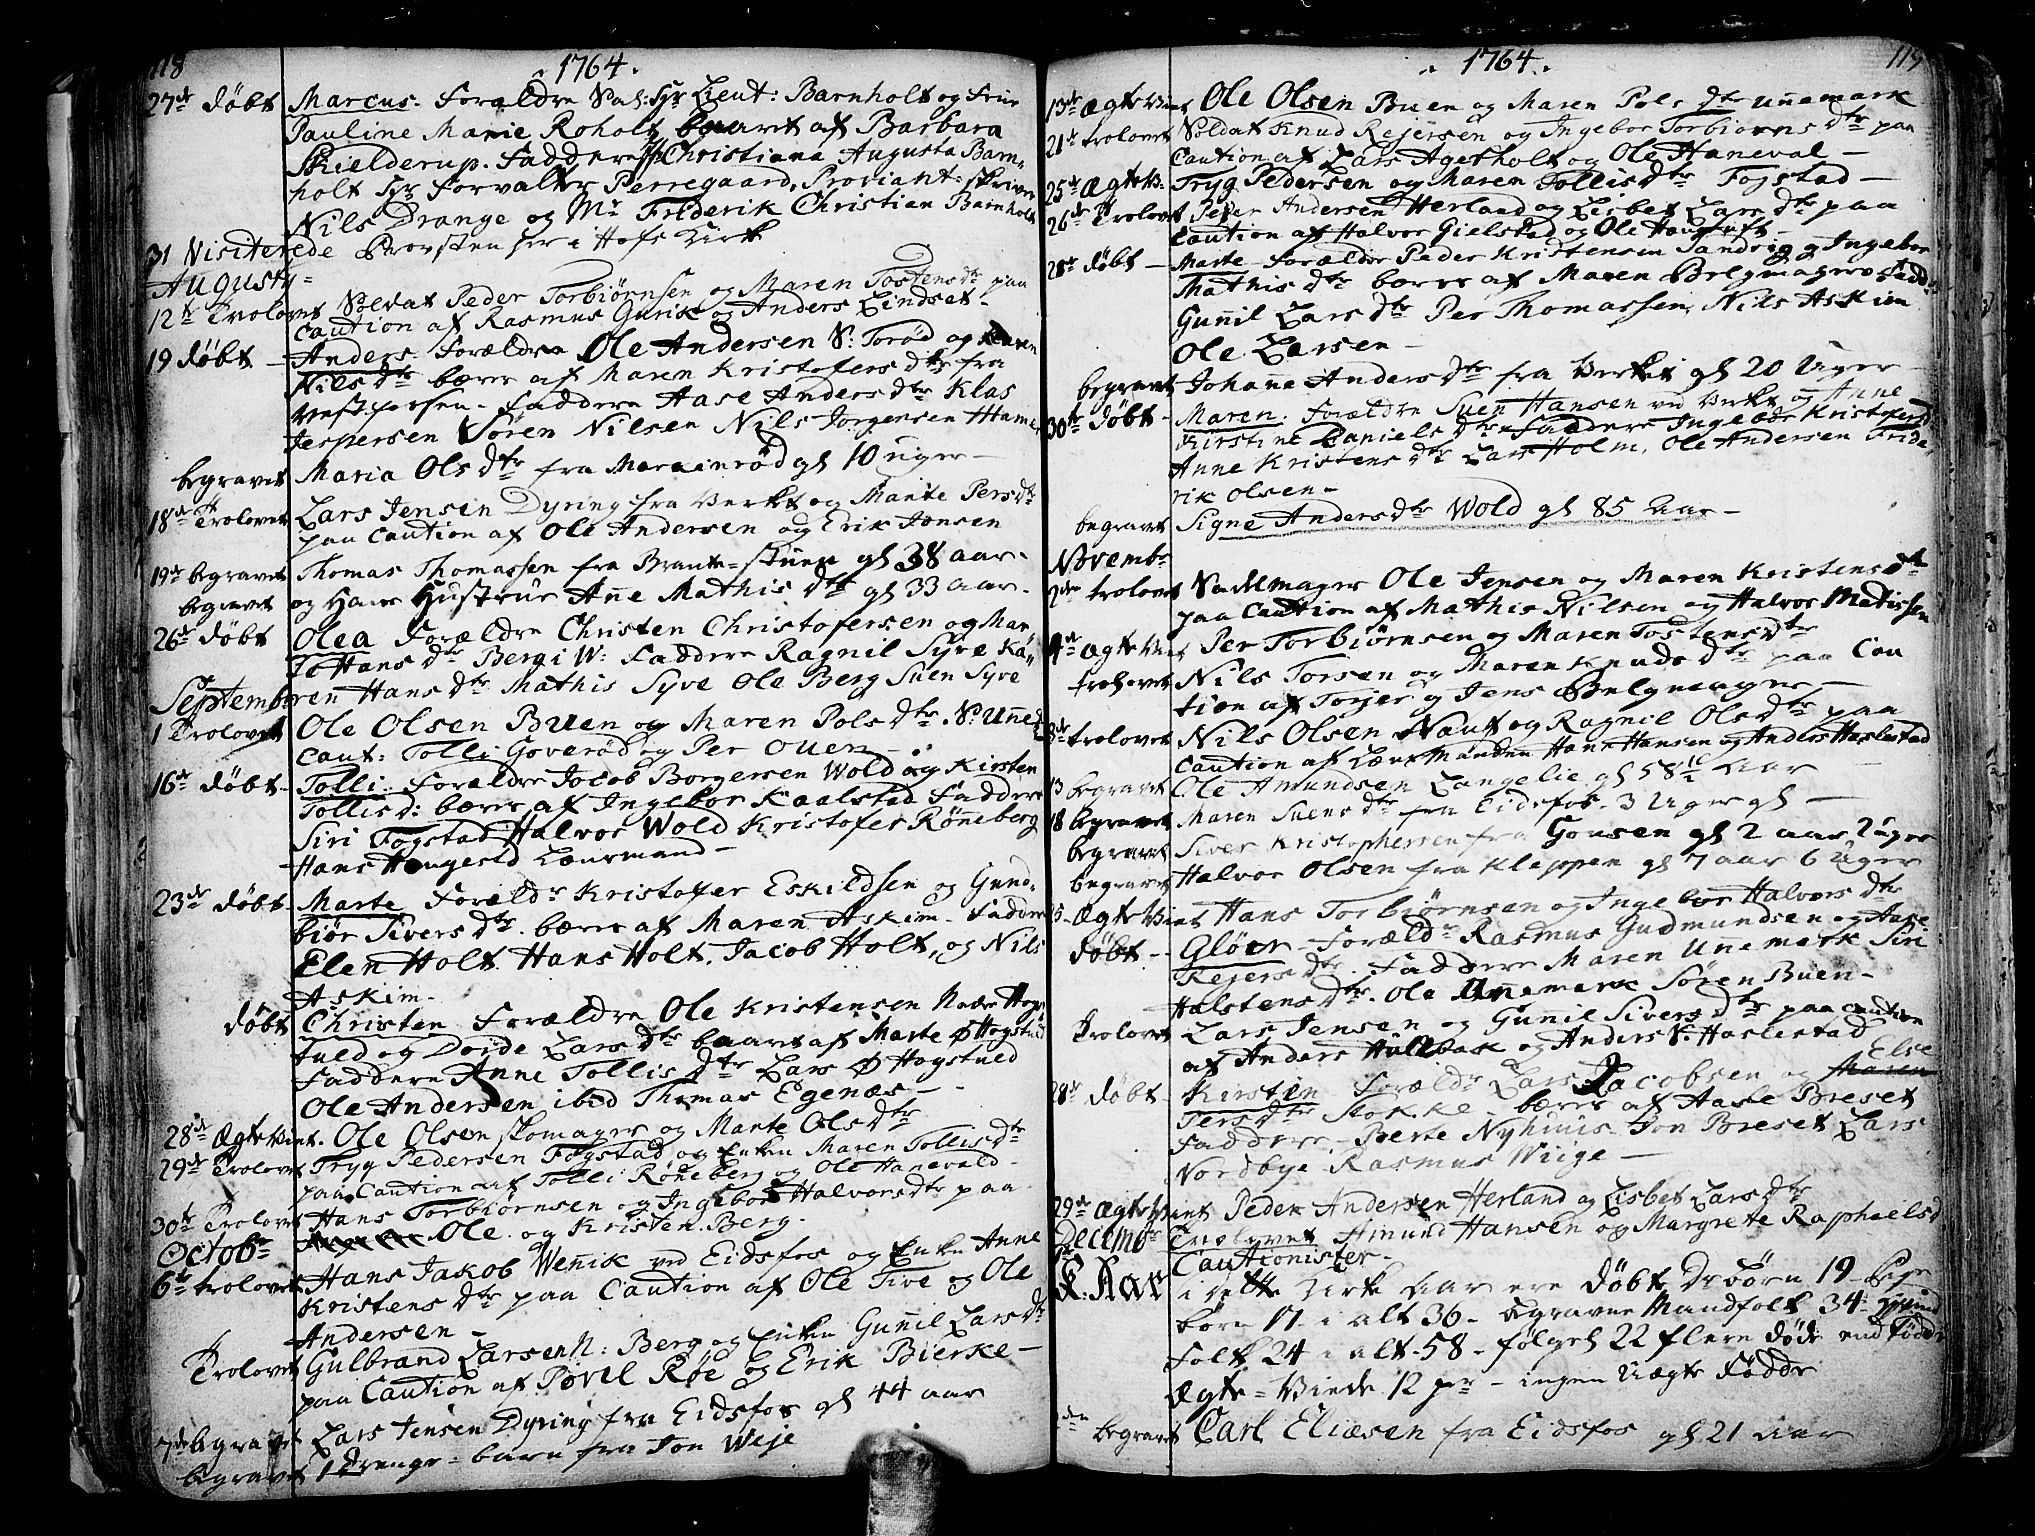 118
1764.
27de døbt Marcus. Forældre Sal: Hr Lieut: Barnholt og Frue
Pauline Marie Roholt, baaret af Barbara
Skielderup. Faddere Christiana Augusta Barn-
holt Hr Forvalter Perregaard, Proviant-skriver
Nils Drange og Mr Frederik Christian Barnholt
31 Visiterede Provsten her i Hofs Kirk
Augusty
12te Trolovet Soldat Peder Torbiørnsen og Maren Tostensdtr paa
Caution af Rasmus Gurik og Anders Lindset-
19 døbt - Anders. Forældre Ole Andersen N: Torød og Karen
Nilsdtr bæres af Maren Kristofersdtr fra
Vestfossen. Faddere Aase Andersdtr Klas
Jespersen Søren Nilsen Nils Jørgensen Hamer
begravet Maria Olsdtr fra Marainrød gl 10 uger-
18de Trolovet Lars Jensen Dyring fra Verket og Marte Persdtr
paa Caution af Ole Andersen og Erik Jonsen
19de begravet Thomas Thomassen fra Brænte-skuen gl 38 aar.
begravet og Hans Hustrue Anne Mathisdtr gl 33 aar.
26de døbt Olea Forældre Christen Christofersen og Mar
Hansdtr Berg i W: Faddere Ragnil Syve Ka
Septembr ren Hansdtr Mathis Syve Ole Berg Suen Syve
1 Trolovet Ole Olsen Buen og Maren Polsdtr N: Unne
Caut: Tolli Goverød og Per Ouen-
16de døbt- Tolli. Forældre Jocob Borgersen Wold og Kirsten
Tollisd: bæres af Ingebor Kaalstad Faddere
Siri Fogstad Halvor Wold Kristofer Røneberg
Hans Haugestd Lænsmand-
23de døbt- Marte Foreldr Kristofer Eskildsen og Gund-
biør Siversdtr. bæres af Maren Askim. Faddere
Elen Holt. Hans Holt. Jacob Holt, og Nils
Askim-
døbt Christen Forældre Ole Kristensen Hogs
tuld og Dorde Larsdtr baaret af Marte Ø Hogstuld
Faddere Anne Tollisdtr Lars Ø Hogstuld
Ole Andersen ibid Thomas Egenæs-
28de Ægte Viet. Ole Olsen skomager og Marte Olsdtr
29de Trolovet Tryg Pedersen Fogstad og Enken Maren Tollisdtr
paa Caution af Tolli Røneberg og Ole Hanevald-
30te Trolovet Hans Torbiørnsen og Ingebor Halvorsdtr paa
Octobr Ole og Kristen Berg.
6te trolovet Hans Jakob Wenik ved Eidsfos og Enken Anne
Kristensdtr paa Caution af Ole Tive og Ole
Andersen-
Trolovet Gulbrand Larsen N: Berg og Enken Gunil Larsdtr
paa Caution af Povel Røe og Erik Bierke-
7de begravet Lars Jensen Dyring fra Eidsfos gl 44 aar
begravet 1 Drenge-barn fra Jon Weje
119
1764.
13de Ægte Viet Ole Olsen Buen og Maren Polsdtr Unnemark
21de trolovet Soldat Knud Rejersen og Ingebor Torbiørnsdtr paa
Caution af Lars Agerholt og Ole Haneval-
25de Ægte V: Tryg Pedersen og Maren Tollisdtr Fogstad-
26de Trolovet Peder Andersen Herland og Lisbet Larsdtr paa
Caution af Halvor Gielstad og Ole Haugtuft-
28de døbt - Marte Forældre Peder Kristensen Sandvig og Ingebor
Mathisdtr bæres af Maren Belgmager Fadd
Gunnil Larsdtr Per Thomassen, Nils Askien
Ole Larsen-
begravet Johane Andersdtr fra Verket gl 20 Uger
30te døbt - Maren. Forældre Suen Hansen ved Verkt og Anne
Kirstine Danielsdtr Faddere Ingebor Kristofersdtr
Anne Kristensdtr Lars Holm, Ole Andersen Fride-
rik Olsen-
begravet Signe Andersdtr Wold gl 85 Aar-
Novembr
2den trolovet Sadelmager Ole Jensen og Maren Kristensdtr
paa Caution af Mathis Nilsen og Halvor Matissen
4de Ægte Viet Per Torbiørnsen og Maren Tostensdtr
trolovet Nils Torsen og Maren Knudsdtr paa Cau
tion af Torjer og Jens Belgmager-
trolovet Nils Olsen Naut og Ragnil Olsdtr paa
Caution af Lænsmanden Hans Hansen og Anders Haslestad
13 begravet Ole Amundsen Langelie gl 58 Aar
18 begravet Maren Suensdtr fra Eidsfos. 3 Uger gl-
begravet Siver Kristophersen fra Gousen gl 2 aar 2 uger
begravet Halvor Olsen fra Kleppen gl 7 aar 6 Uger
25. Ægte Viet Hans Torbiørnsen og Ingebor Halvorsdtr
døbt- Gløer- Foreldr Rasmus Gudmundsen og Aase
Rejersdtr. Faddere Maren Unemark Siri
Halstensdtr. Ole Unnemark Søren Buen-
Trolovet Lars Jensen og Gunil Siversdtr paa caution
af Anders Hulbak og Anders N. Haslestad
28de døbt- Kirsten Foreldr Lars Jacobsen og Maren Else
Persdtr Stokke- bæres af Aase Breset
Faddere- Berte Nyhuus Jon Breset Lars
Nordbye Rasmus Wiige-
29de Ægte Viet Peder Andersen Herland og Lisbet Larsdtr
Decembr Trolovet Amund Hansen og Margrete Raphaelsd
Cautionister-
K. Aar i dette Kirke Aar ere døbt Dr børn 19- Pige
børn 17 i alt 36- Begravne Mandfolk 34 qvind
folk 24 i alt 58- følgel 22 flere døde end fødde
Ægte-Viede 12 par- ingen Uægte fødde
begravet Carl Eliesen fra Eidsfos gl 21 Aar